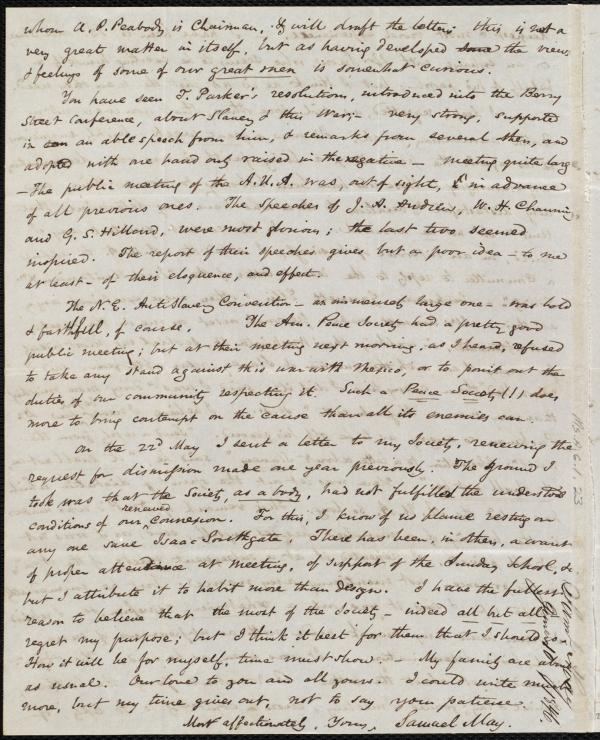 whom A. P. Peabody is Chairman, & will draft the letter; this is not a
very great matter in itself, but as having developed some the views
& feelings of some of our great men is somewhat curious.
You have seen T. Parker's resolutions, introduced into the Berry
Street Conference, about Slavery & this War; – very strong, supported
in an able speech from him, & remarks from several others, and
adopted with one hand only raised in the negative – meeting quite large
– The public meeting of the A.U.A. was, out of sight, in advance
of all previous ones. The speeches of J. A. Andrew, W. H. Channing,
and G. S. Hillard, were most glorious; the last two seemed
inspired. The report of their speeches gives but a poor idea – to me
at least – of their eloquence, and effect.
The N. E. AntiSlavery Convention – an immensely large one – was bold
& faithful, of course. The Am. Peace Society had a pretty good
public meeting; but at their meeting next morning, as I heard, refused
to take any stand against this war with Mexico, or to point out the
duties of our community respecting it. Such a Peace Society (!) does
more to bring contempt on the cause than all its enemies can.
On the 22d May I sent a letter to my Society, renewing the
request for dismission made one year previously. The ground I
took was that the Society, as a body, had not fulfilled the understood
conditions of our renewed connexion. For this, I know of no blame resting on
any one save Isaac Southgate. There has been, in others, a want
of proper attendance at meeting, of support of the Sunday School, &c
but I attribute it to habit more than design. I have the fullest
reason to believe that the most of the Society – indeed all but all –
regret my purpose; but I think it best for them that I should go.
How it will be for myself, time must show. – My family are about
as usual. Our love to you and all yours. I could write much
more, but my time gives out, not to say your patience.
Most affectionately, Yours, Samuel May.